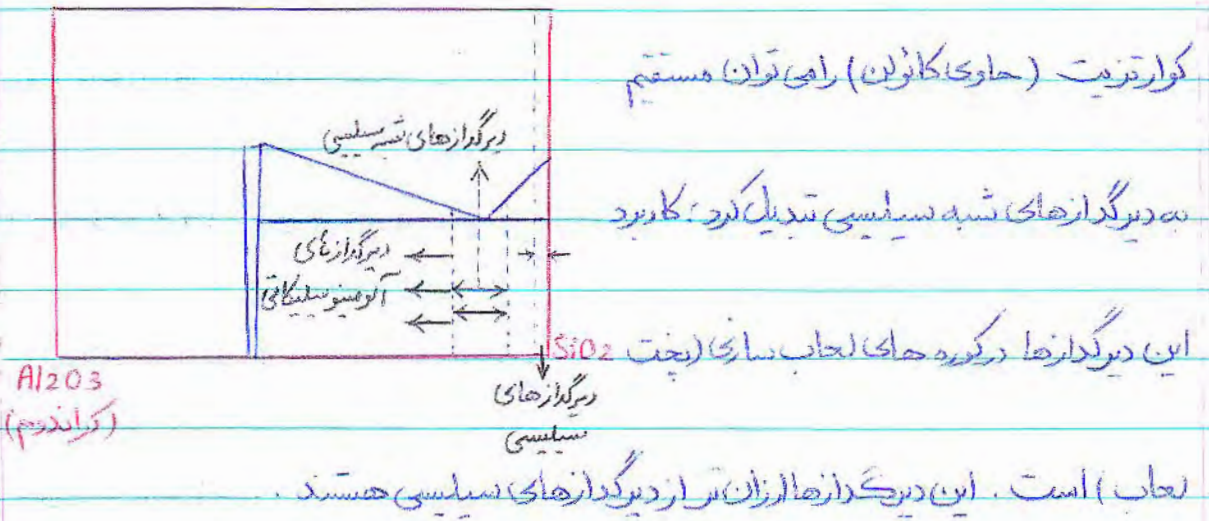 کوارتزیت (حاوی کائولن) را می توان مستقیم
به دیرگدازهای شبه سیلیسی تبدیل کرد؛ کاربرد
این دیرگدازها در کوره های لعاب سازی (پخت
لعاب) است. این دیرگدازها ارزان تر از دیرگدازهای سیلیسی هستند.
دیرگدازهای شبه سیلیسی
دیرگدازهای
آلومینو سیلیکاتی
SiO2
Al2O3
(کراندوم)
دیرگدازهای
سیلیسی